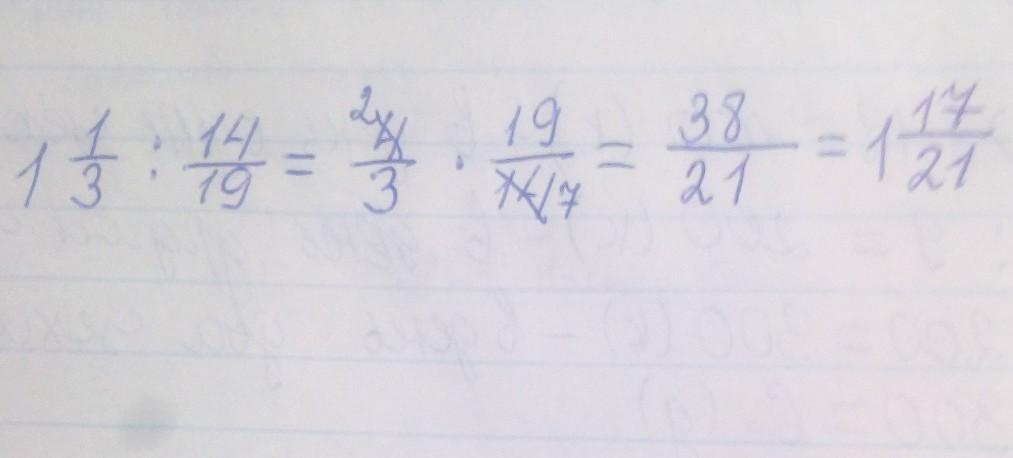 1 1/3 : 14/19 = 2 4/3 · 19/14 7 = 38/21 = 1 17/21